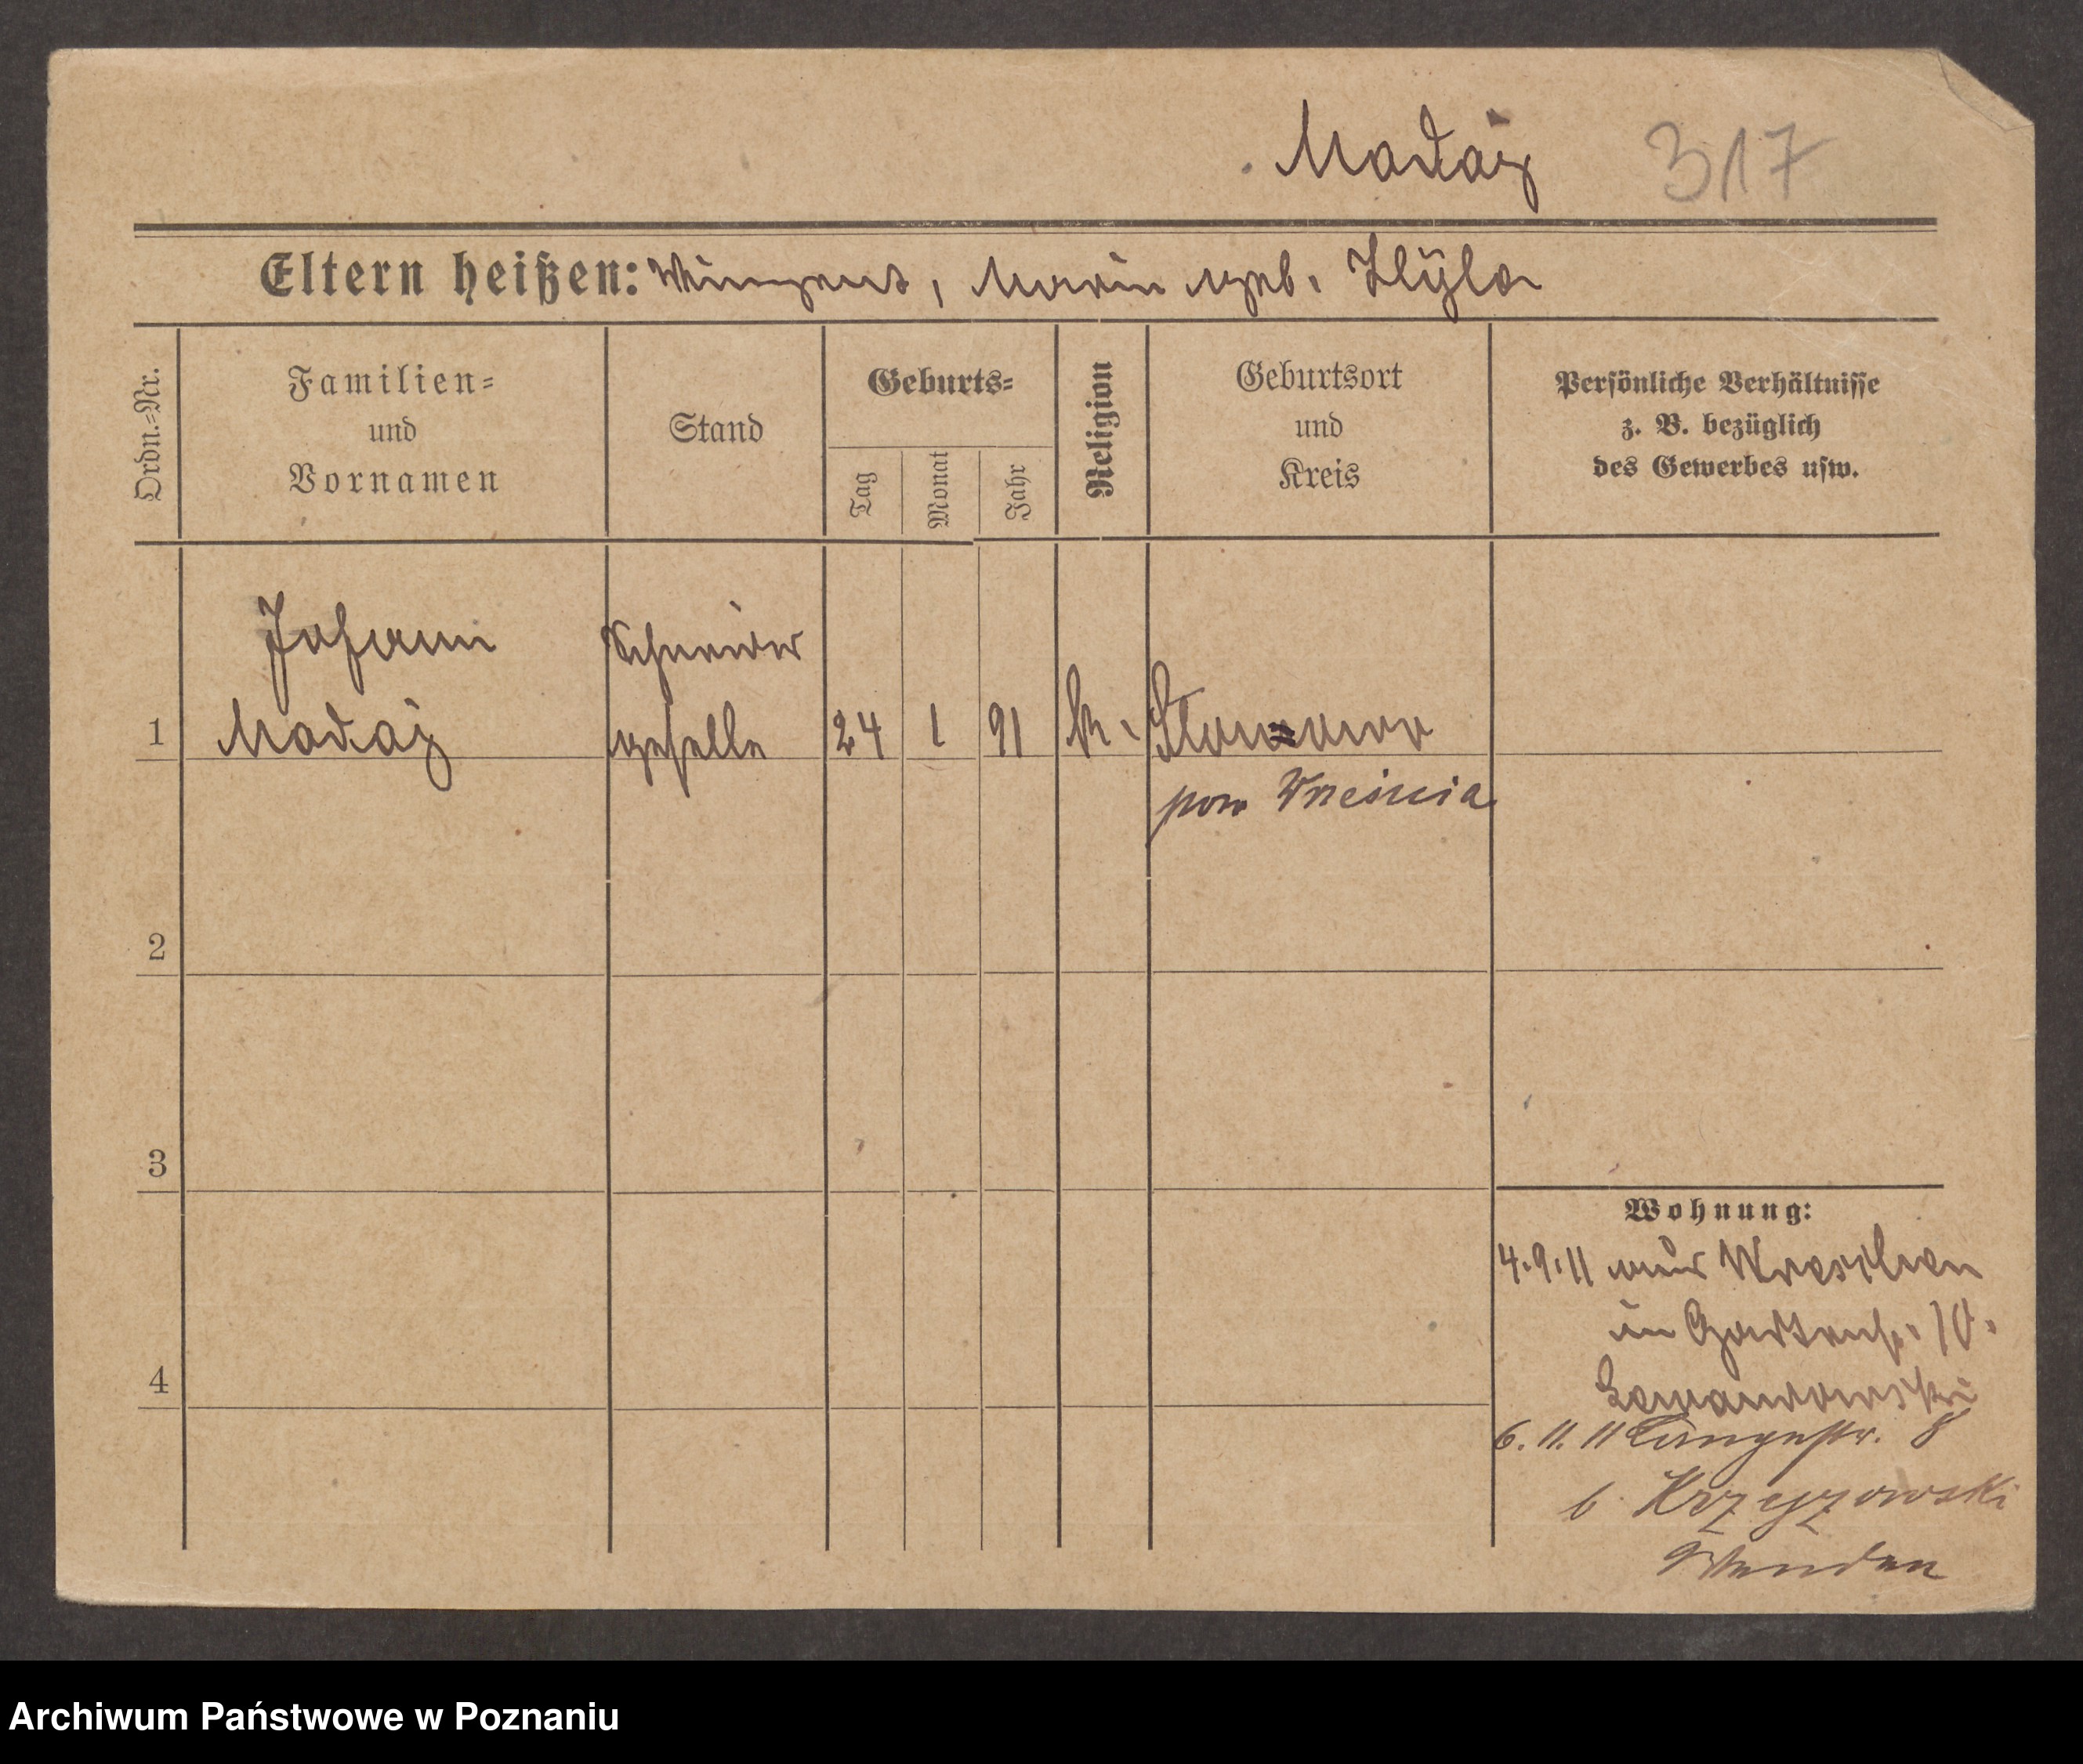 Madaj 317
Eltern heißen: Vinzent, Marie geb. Hyla
Ordn.=Nr.
Familien=
und
Vornamen
Stand
Geburts=
Tag
Monat
Jahr
Religion
Geburtsort
und
Kreis
Persönliche Verhältnisse
z. B. bezüglich
des Gewerbes usw.
Johann Schneider
1 Madaj geselle 24 1 91 k.
pow
2
3
4
Wohnung:
4.9.11 aus Wreschen
in Gartenstr. 10.
Lewandowski
6.11.11 Langestr. 8
b. Krzyzowski
Archiwum Państwowe w Poznaniu